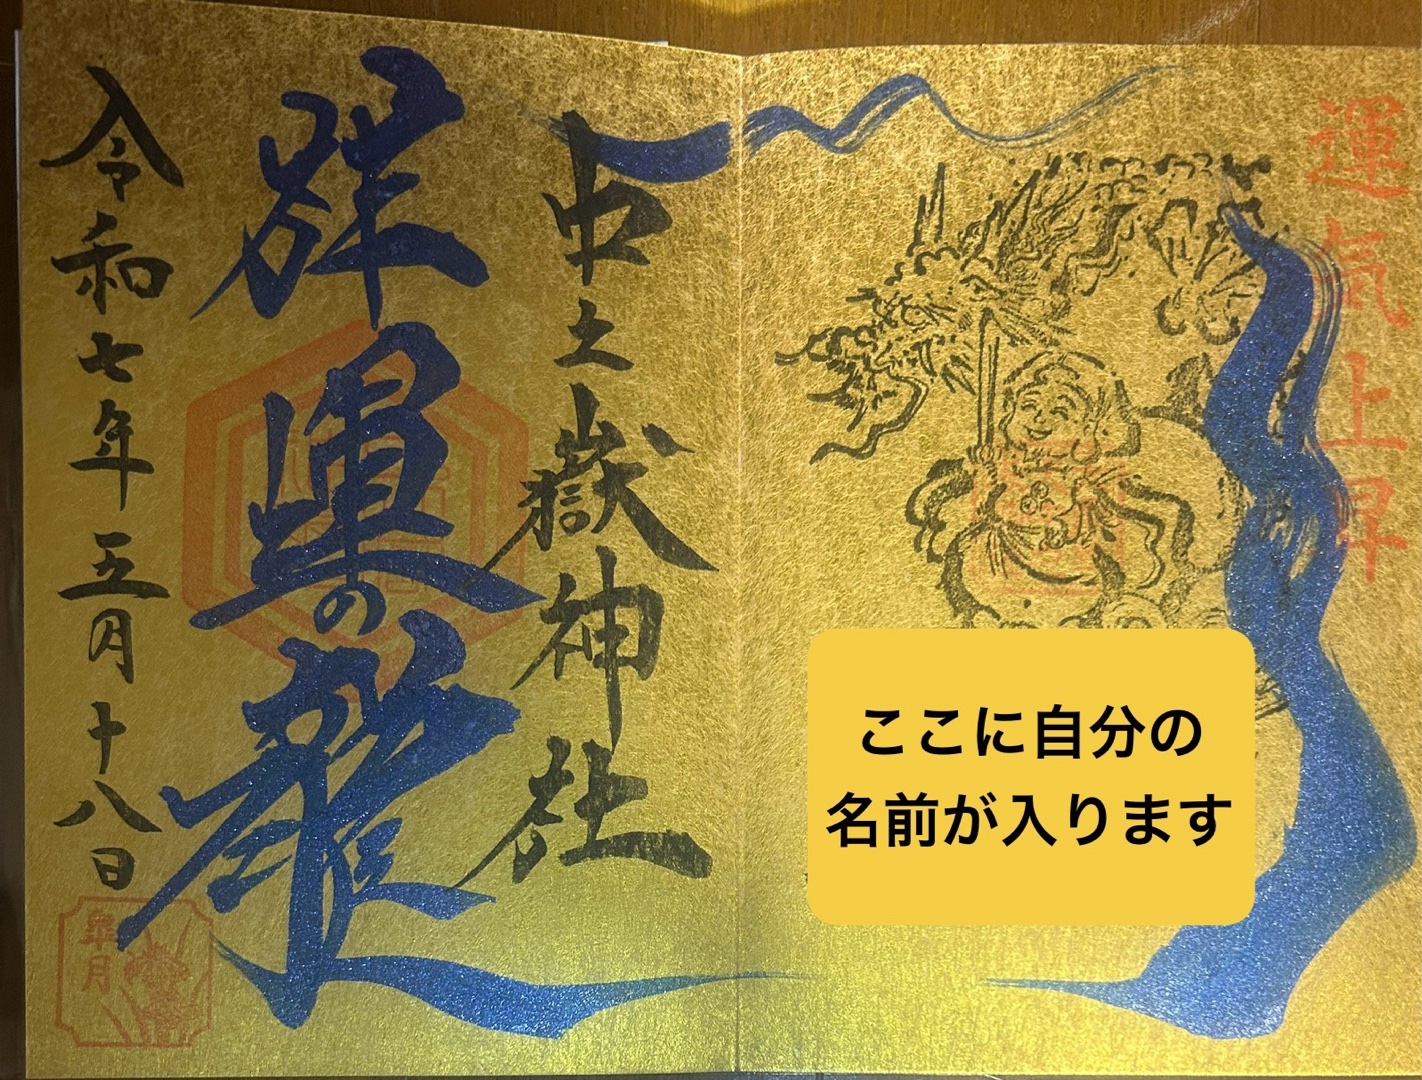 運気上昇
ここに自分の
名前が入ります
中之嶽神社
運の龍
令和七年五月十八日
皐月